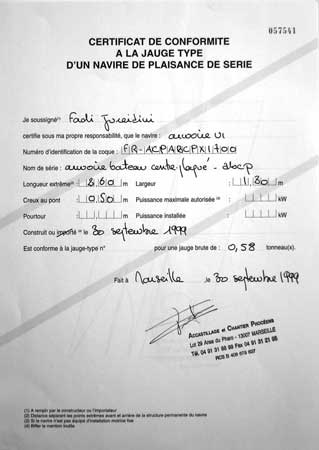 057541
CERTIFICAT DE CONFORMITE
A LA JAUGE TYPE
D'UN NAVIRE DE PLAISANCE DE SERIE
Je soussigné(1) Fadi Jureidini
certifie sous ma propre responsabilité, que le navire : armoire VI
Numéro d'identification de la coque : FR-ACPABCPXI700
Nom de série : armoire bateau contre-plaqué - abcp
Longueur extrême(2) 2,60 m Largeur 1,30 m
Creux au pont 0,50 m Puissance maximale autorisée (3) kW
Pourtour m Puissance installée kW
Construit ou importé le 30 septembre 1999
Est conforme à la jauge-type n° pour une jauge brute de 0,58 tonneau(x).
Fait à Marseille le 30 septembre 1999
ACCASTILLAGE et CHANTIER PHOCÉENS
Lot 29 Anse du Pharo - 13007 MARSEILLE
Tél. 04 91 31 68 98 Fax 04 91 31 21 98
(1) A remplir par le constructeur ou l'importateur
(2) Distance séparant les points extrêmes avant et arrière de la structure permanente du navire
(3) Si le navire n'est pas équipé d'installation motrice fixe
(4) Biffer la mention inutile